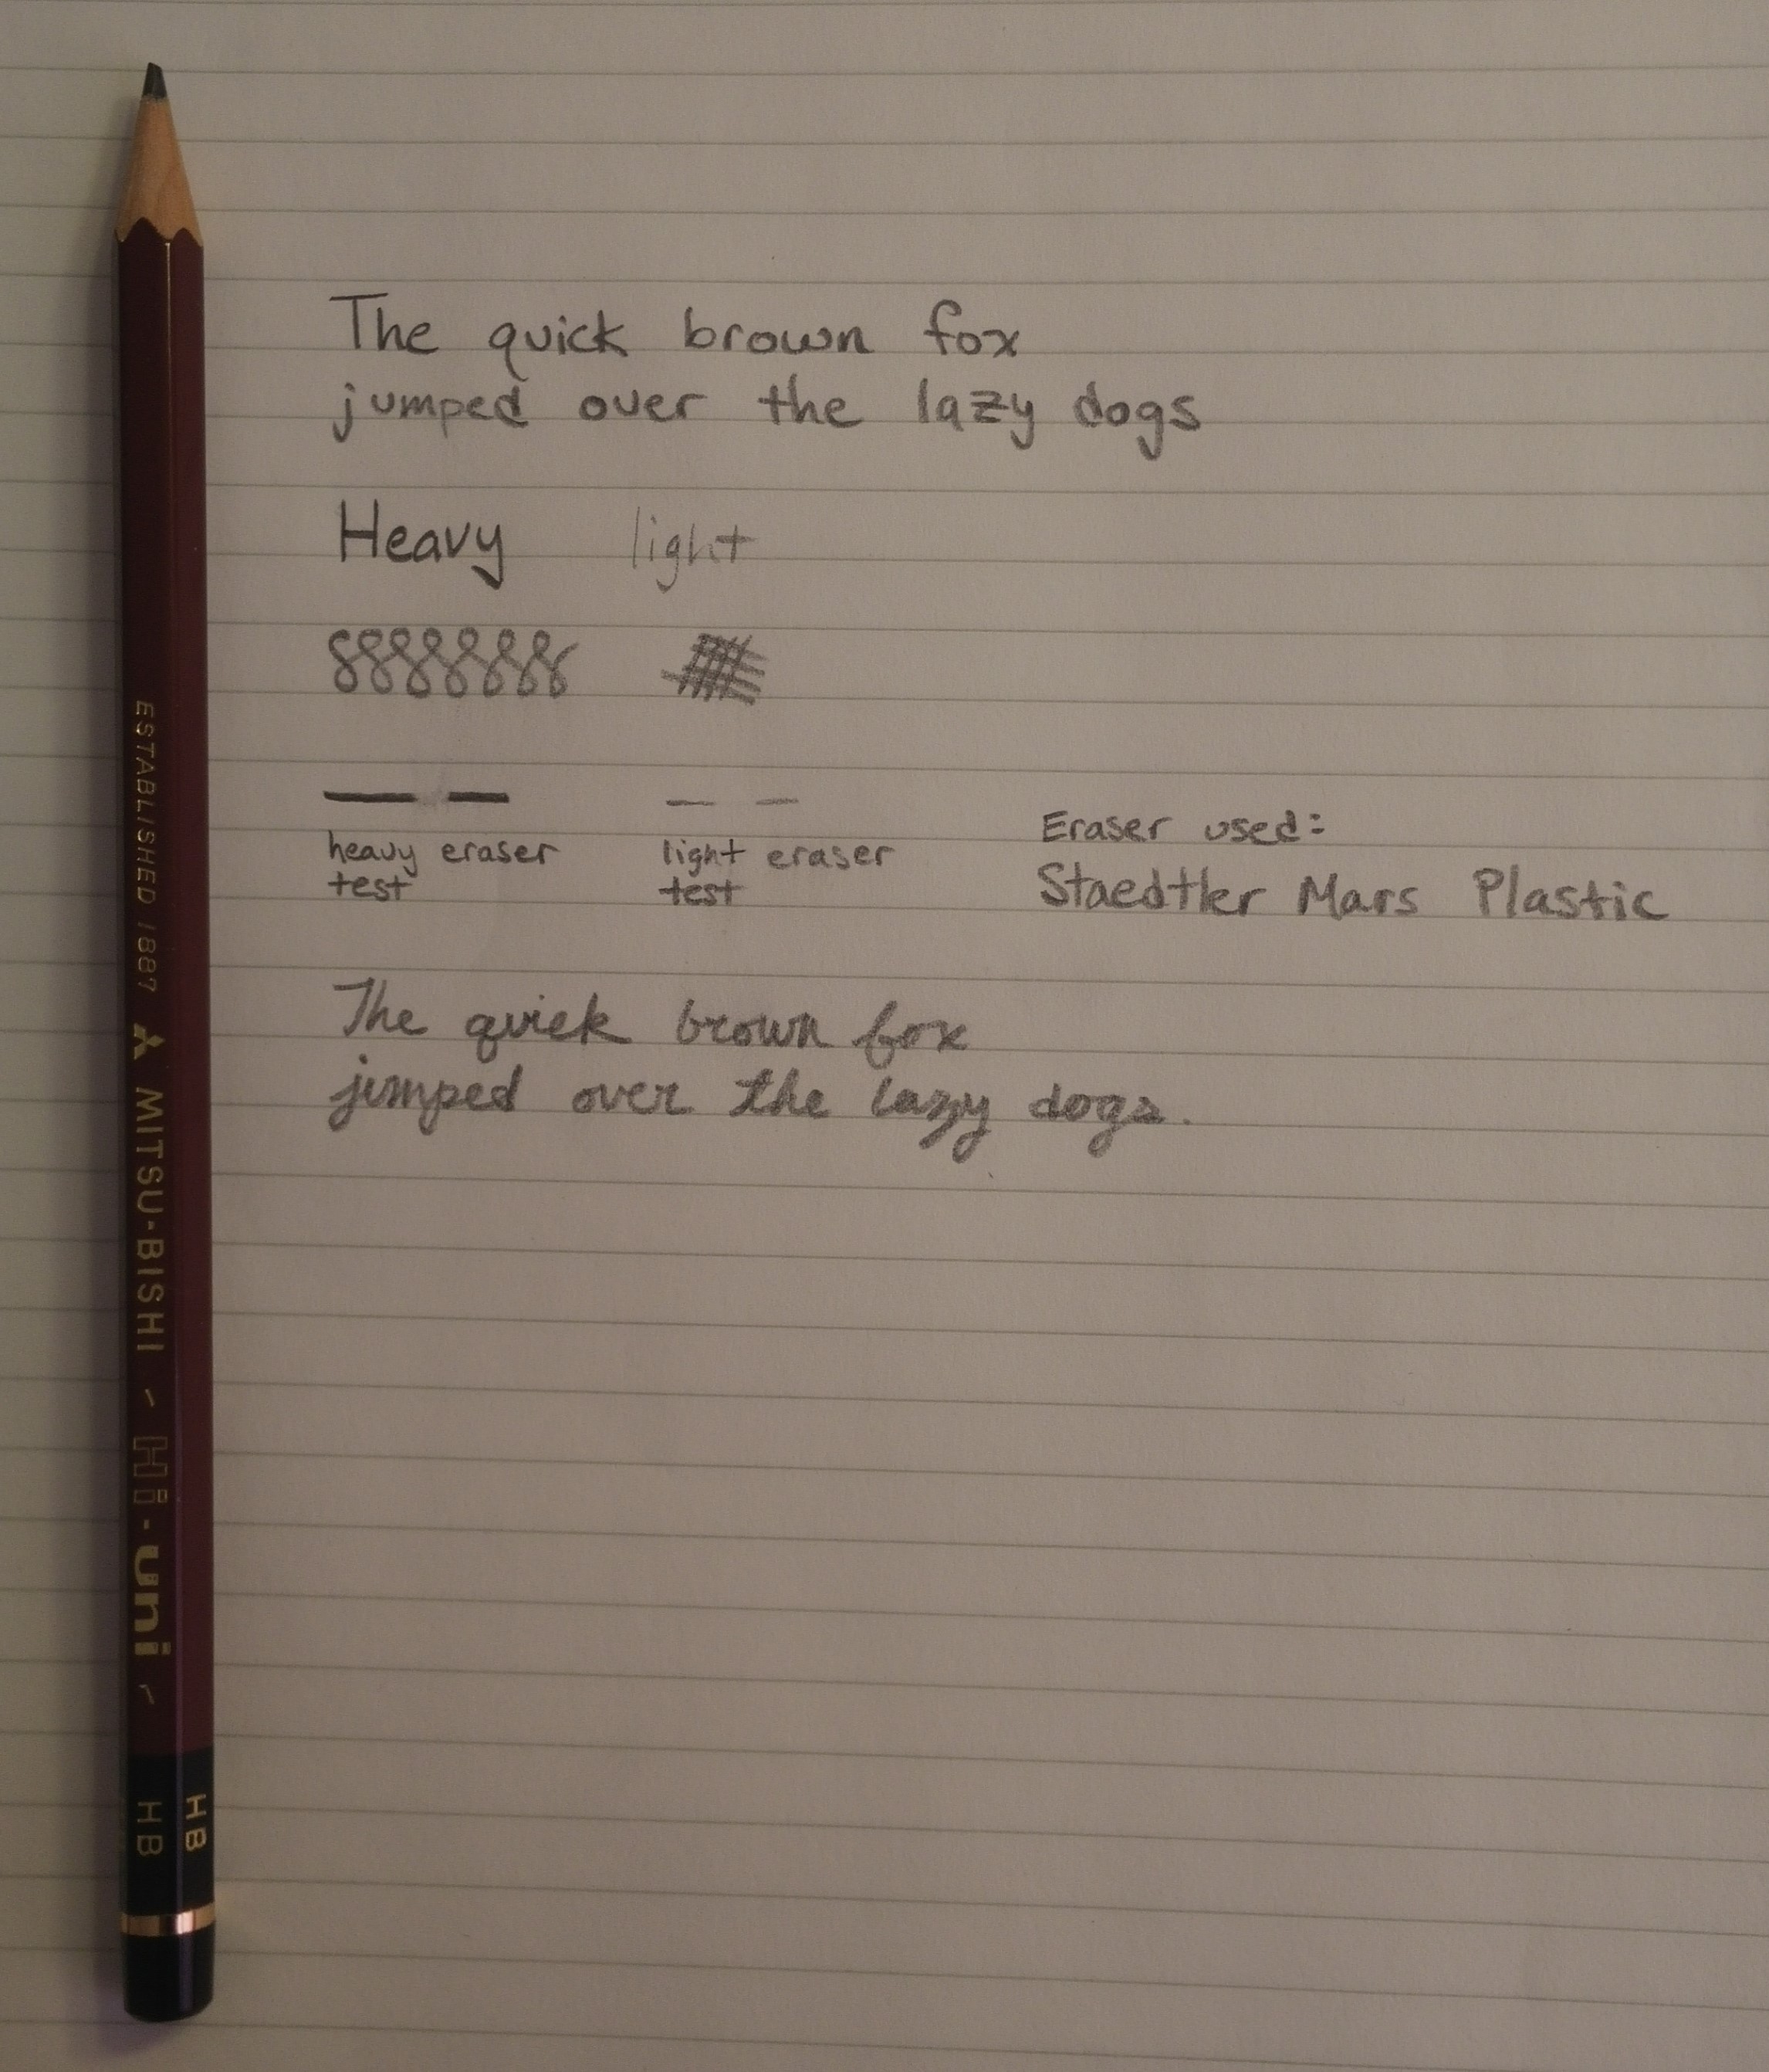 The quick brown fox
jumped over the lazy dogs
Heavy light
heavy eraser
test
light eraser
test
Eraser used:
Staedtler Mars Plastic
The quick brown fox
jumped over the lazy dogs.
ESTABLISHED 1887 MITSU-BISHI ~ Hi-uni ~
HB
HB